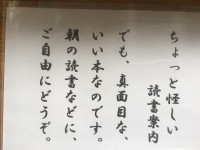 ちょっと怪しい
読書案内
でも、真面目な、
いい本なのです。
朝の読書などに、
ご自由にどうぞ。